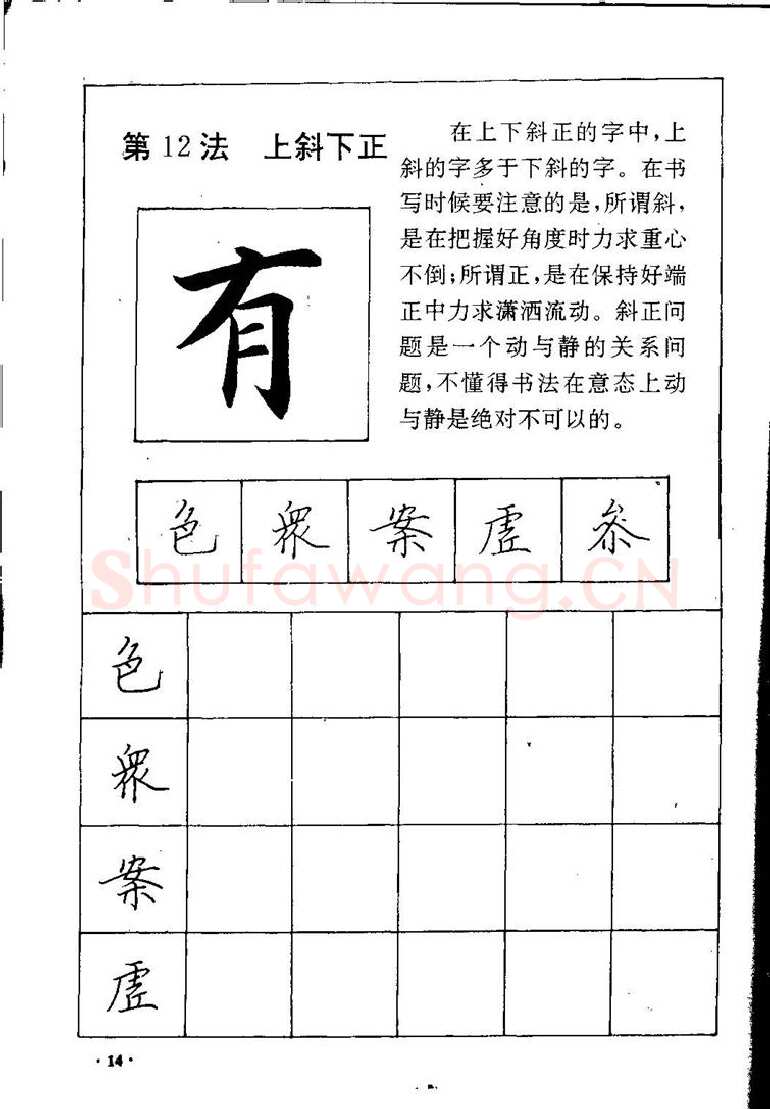 第12法 上斜下正
在上下斜正的字中,上
斜的字多于下斜的字。在书
写时候要注意的是,所谓斜,
是在把握好角度时力求重心
不倒;所谓正,是在保持好端
正中力求潇洒流动。斜正问
题是一个动与静的关系问
题,不懂得书法在意态上动
与静是绝对不可以的。
有
色 眾 案 虛 叅
Shufawang.CN
色
眾
案
虛
·14·